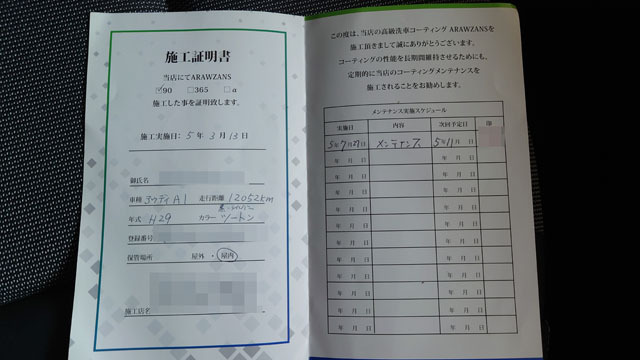 施工証明書
当店にてARAWZANS
☑90 □365 □α
施工した事を証明致します。
施工実施日: 5 年 3 月 13 日
御氏名
車種 アウディA1 走行距離 12052km
年式 H29 カラー ツートン
登録番号
保管場所 屋外・屋内
施工店名
この度は、当店の高級洗車コーティング ARAWZANSを
施工頂きまして誠にありがとうございます。
コーティングの性能を長期間維持させるためにも、
定期的に当店のコーティングメンテナンスを
施工されることをお勧めします。
メンテナンス実施スケジュール
実施日 内容 次回予定日 印
5年7月27日 メンテナンス 5年11月 日
年 月 日 年 月 日
年 月 日 年 月 日
年 月 日 年 月 日
年 月 日 年 月 日
年 月 日 年 月 日
年 月 日 年 月 日
年 月 日 年 月 日
年 月 日 年 月 日
年 月 日 年 月 日
年 月 日 年 月 日
年 月 日 年 月 日